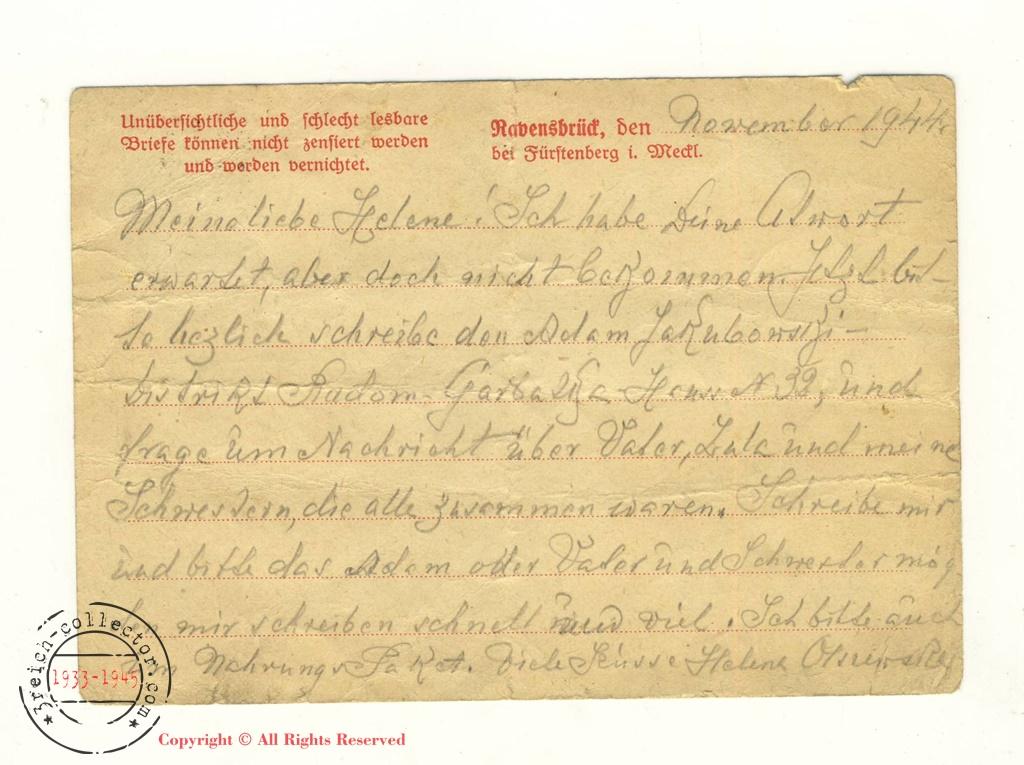 Unübersichtliche und schlecht lesbare
Briefe können nicht zensiert werden
und werden vernichtet.
Ravensbrück, den November 1944.
bei Fürstenberg i. Meckl.
Meine liebe Helene! Ich habe Deine Atwort
erwartet, aber doch nicht bekommen. Jetzt bit-
te hezlich schreibe den Adam Jakubowski-
Distrikt Radom- Garbatka Haus N 32, und
frage um Nachricht über Vater, und meine
Schwestern, die alle zusammen waren. Schreibe mir
und bitte das Adam oder Vater und Schwester mög
ben mir schreiben schnell und viel. Ich bitte auch
um Nahrungs Paket. Viele Küsse Helena
3reich-collector.com
1933-1945
Copyright © All Rights Reserved